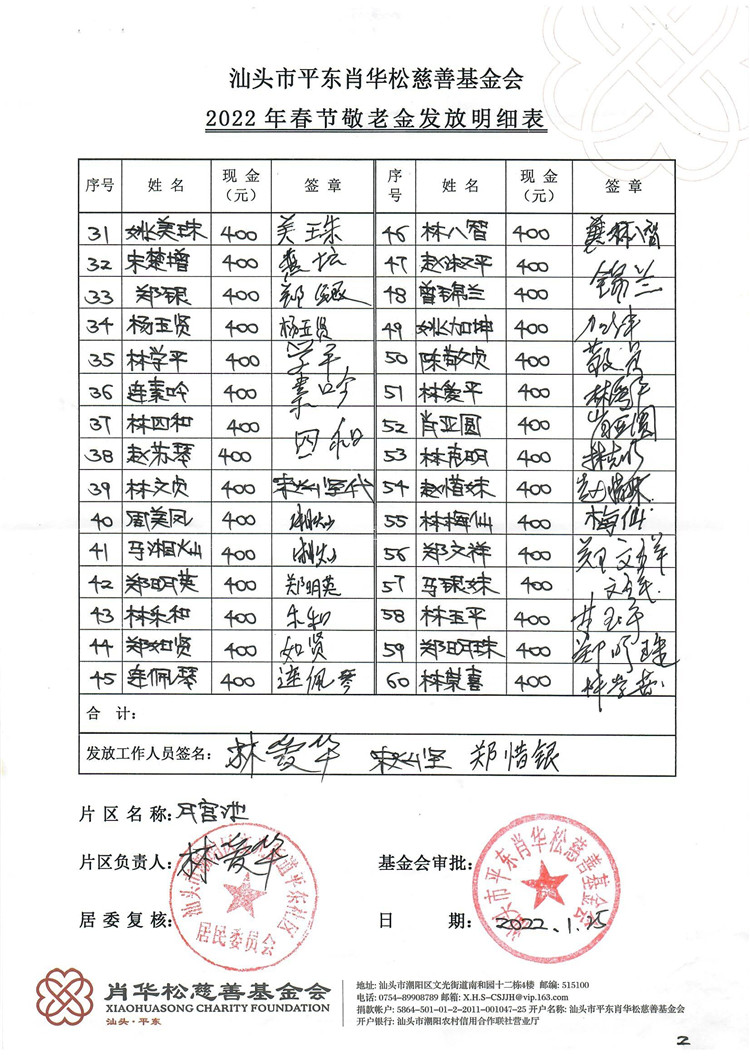 汕头市平东肖华松慈善基金会
2022年春节敬老金发放明细表
序号 姓名 现金（元） 签章 序号 姓名 现金（元） 签章
31 姚美珠 400 美珠 46 林八智 400
32 宋楚增 400 47 400
33 郑银 400 郑银 48 曾锦兰 400 锦兰
34 杨玉贤 400 杨玉贤 49 姚加坤 400
35 林学平 400 学平 50 陈敬贞 400 敬贞
36 连素吟 400 素吟 51 林爱平 400
37 林四和 400 四和 52 肖亚圆 400 肖亚圆
38 赵苏琴 400 53 林克明 400 林克明
39 林文贞 400 54 赵惜妹 400
40 周美凤 400 55 林梅仙 400 梅仙
41 马湘灿 400 56 郑文祥 400 郑文祥
42 郑明英 400 郑明英 57 马银妹 400
43 林乐和 400 58 林玉平 400
44 郑如贤 400 如贤 59 郑明珠 400 郑明珠
45 连佩琴 400 连佩琴 60 林荣喜 400
合计:
发放工作人员签名: 林爱华 郑惜银
片区名称: 宫池
片区负责人: 林爱华 基金会审批:
居委复核: 日期: 2022.1.25
平东社区
居民委员会
汕头市平东肖华松慈善基金会
肖华松慈善基金会
XIAOHUASONG CHARITY FOUNDATION
汕头·平东
地址: 汕头市潮阳区文光街道南和园十二栋4楼 邮编: 515100
电话: 0754-89908789 邮箱: X.H.S-CSJJH@vip.163.com
捐款帐户: 5864-501-01-2-2011-001047-25 开户名称: 汕头市平东肖华松慈善基金会
开户银行: 汕头市潮阳农村信用合作联社营业厅
2